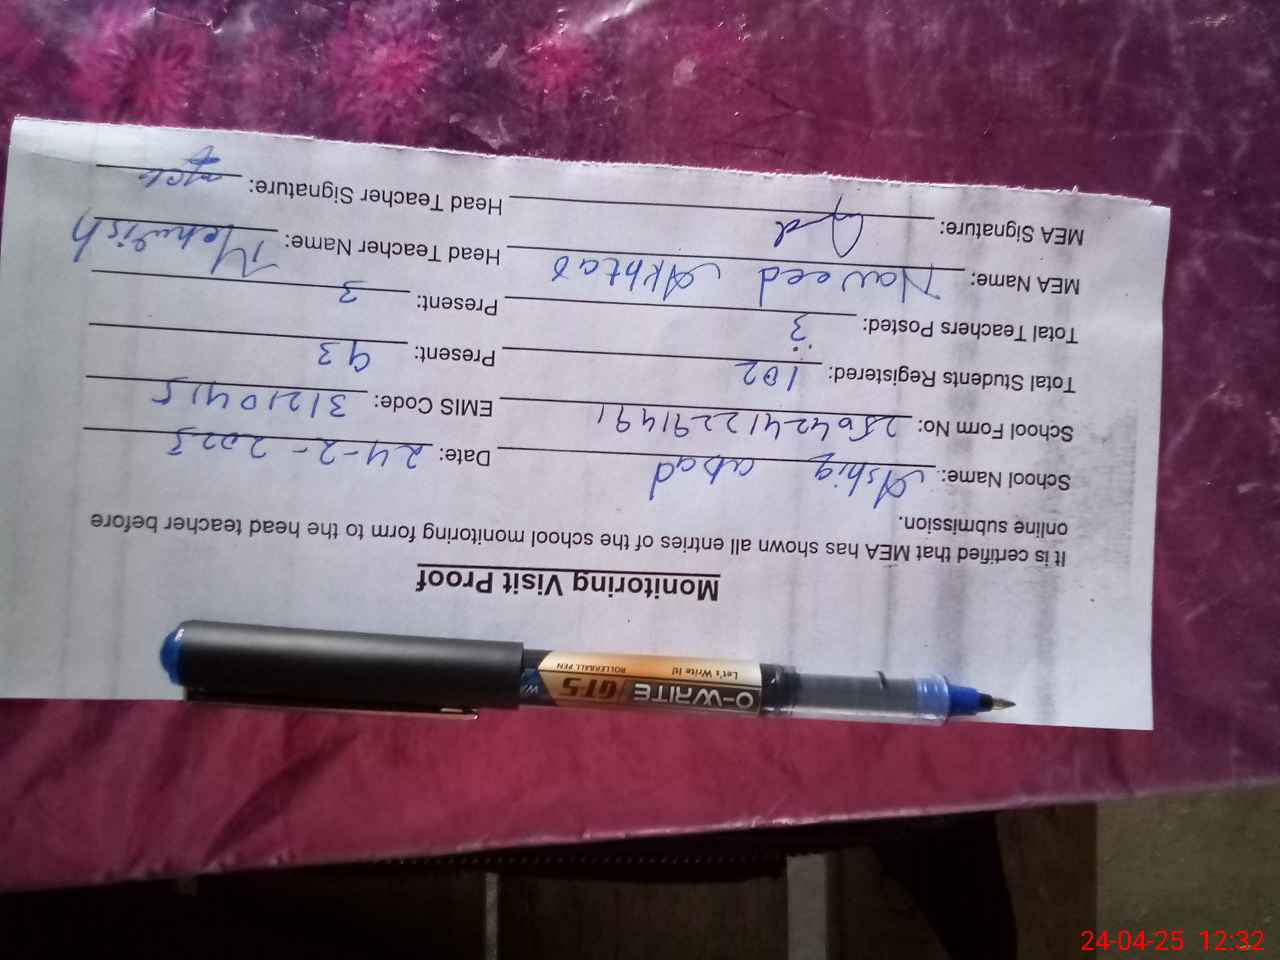 Monitoring Visit Proof
It is certified that MEA has shown all entries of the school monitoring form to the head teacher before
online submission.
School Name: Ashiq abad Date: 24-2-2023
School Form No: 25042412291491 EMIS Code: 31210415
Total Students Registered: 102 Present: 93
Total Teachers Posted: 3 Present: 3
MEA Name: Naveed Akhtar Head Teacher Name: Mehwish
MEA Signature: Head Teacher Signature:
O-WRITE GT5
Let's Write It! ROLLERBALL PEN
24-04-25 12:32